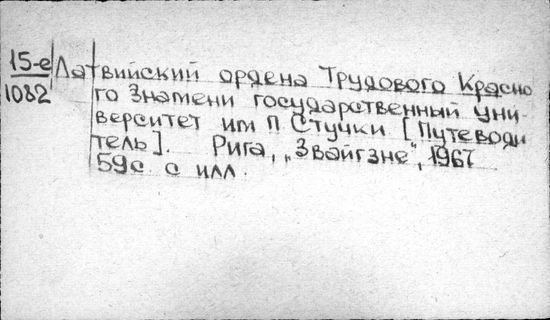 15-е
1082
Латвийский ордена Трудового Красно
го Знамени государственный уни-
верситет им П Стучки. [Путеводи
тель]. Рига, „Звайгзне", 1967
59с. с илл.